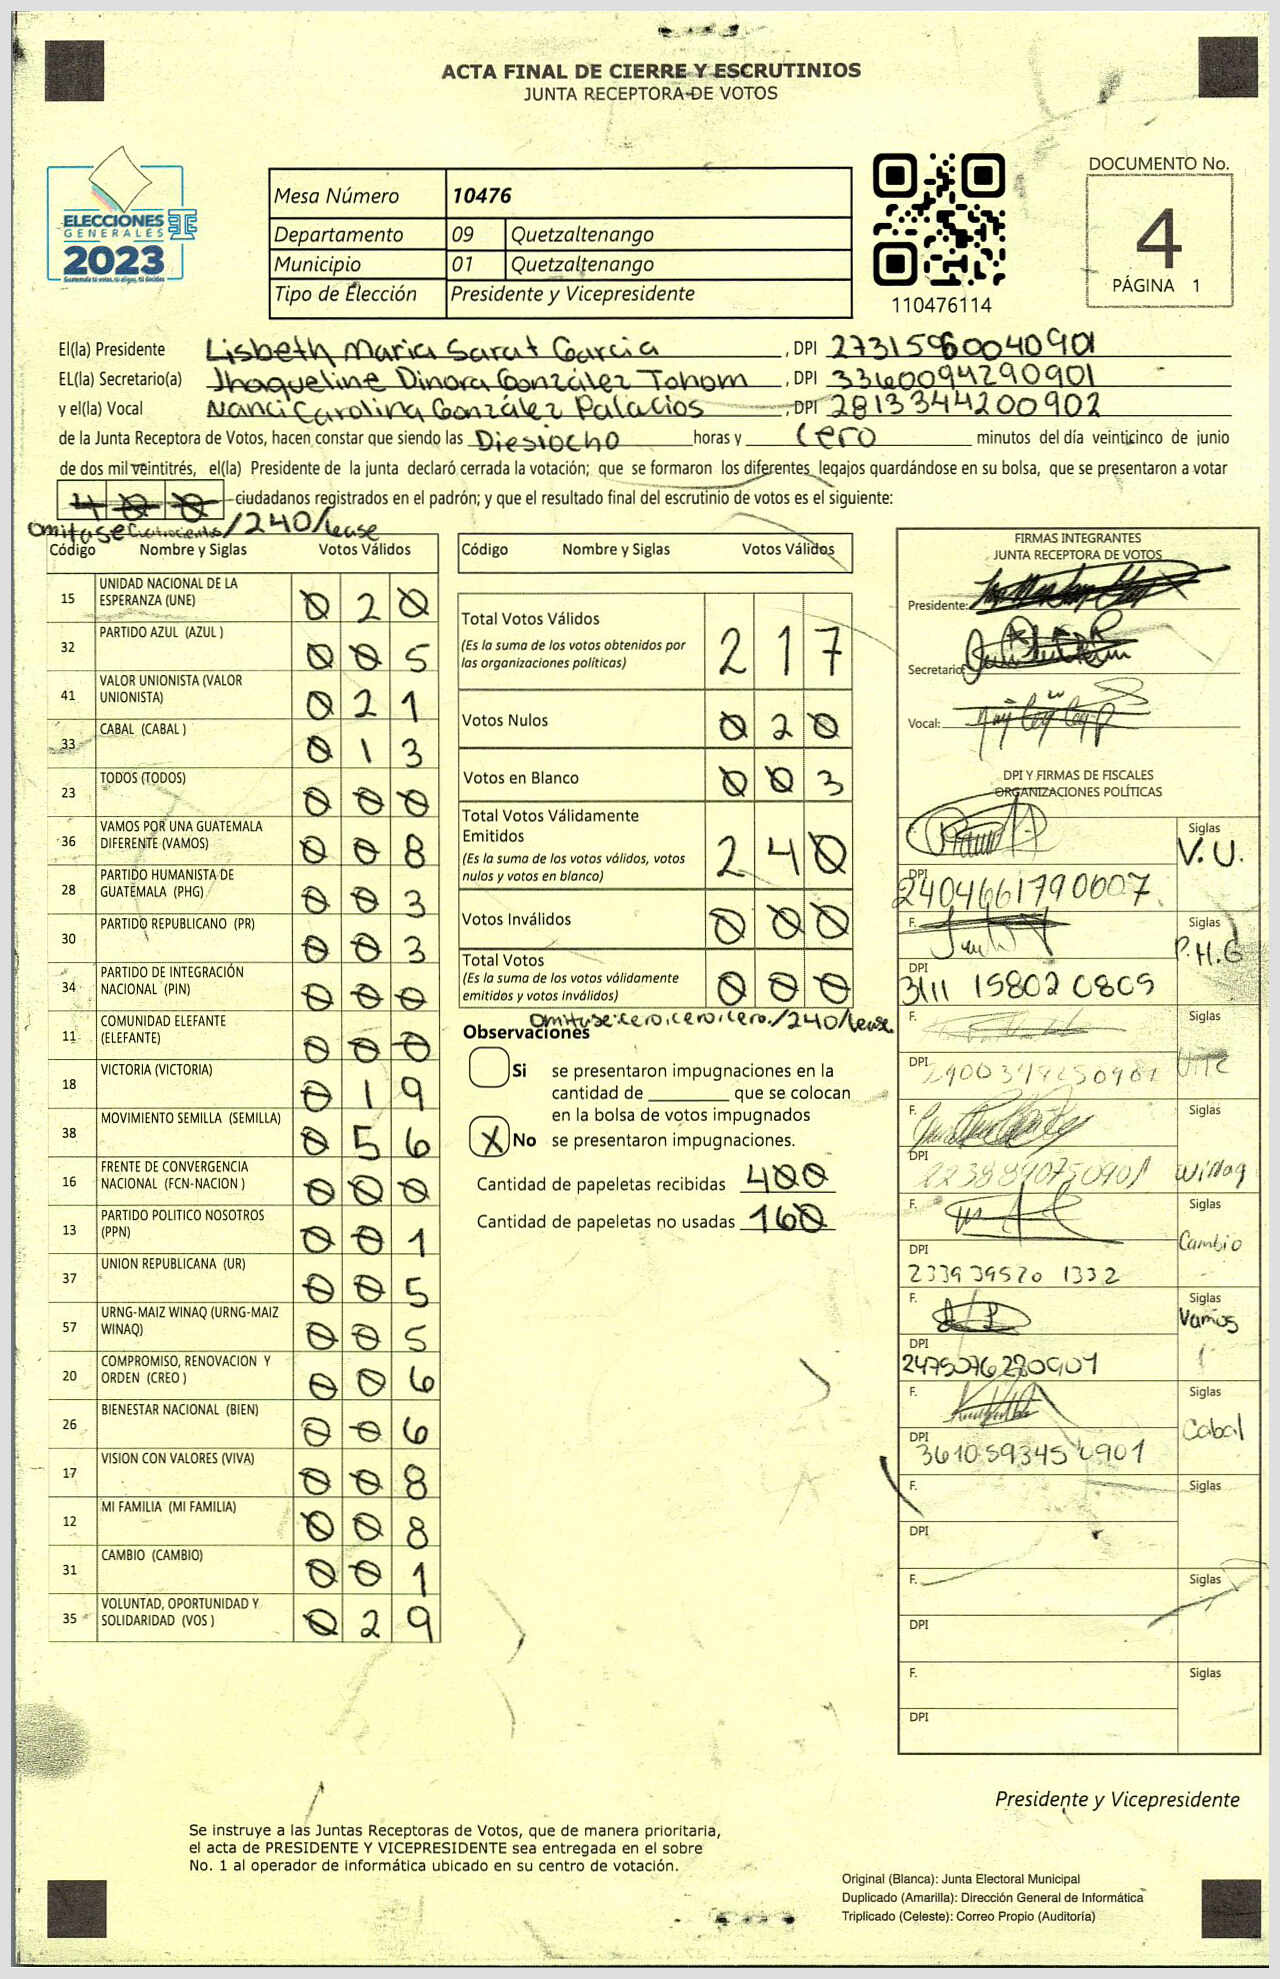 ACTA FINAL DE CIERRE Y ESCRUTINIOS
JUNTA RECEPTORA DE VOTOS
ELECCIONES
GENERALES
2023
Mesa Número 10476
Departamento 09 Quetzaltenango
Municipio 01 Quetzaltenango
Tipo de Elección Presidente y Vicepresidente
110476114
DOCUMENTO No.
4
PÁGINA 1
El(la) Presidente Lisbeth Maria Sarat Garcia, DPI 27315960040901
EL(la) Secretario(a) Jhaqueline Dinora González Tohom, DPI 3360094290901
y el(la) Vocal Nanci Carolina González Palacios, DPI 2813344200902
de la Junta Receptora de Votos, hacen constar que siendo las Diesiocho horas y cero minutos del día veinticinco de junio
de dos mil veintitrés, el(la) Presidente de la junta declaró cerrada la votación; que se formaron los diferentes legajos guardándose en su bolsa, que se presentaron a votar
400 ciudadanos registrados en el padrón; y que el resultado final del escrutinio de votos es el siguiente:
omitase cuatrocientos /240/ lease
Código Nombre y Siglas Votos Válidos
15 UNIDAD NACIONAL DE LA ESPERANZA (UNE) 0 2 0
32 PARTIDO AZUL (AZUL ) 0 0 5
41 VALOR UNIONISTA (VALOR UNIONISTA) 0 2 1
33 CABAL (CABAL ) 0 1 3
23 TODOS (TODOS) 0 0 0
36 VAMOS POR UNA GUATEMALA DIFERENTE (VAMOS) 0 0 8
28 PARTIDO HUMANISTA DE GUATEMALA (PHG) 0 0 3
30 PARTIDO REPUBLICANO (PR) 0 0 3
34 PARTIDO DE INTEGRACIÓN NACIONAL (PIN) 0 0 0
11 COMUNIDAD ELEFANTE (ELEFANTE) 0 0 0
18 VICTORIA (VICTORIA) 0 1 9
38 MOVIMIENTO SEMILLA (SEMILLA) 0 5 6
16 FRENTE DE CONVERGENCIA NACIONAL (FCN-NACION ) 0 0 0
13 PARTIDO POLITICO NOSOTROS (PPN) 0 0 1
37 UNION REPUBLICANA (UR) 0 0 5
57 URNG-MAIZ WINAQ (URNG-MAIZ WINAQ) 0 0 5
20 COMPROMISO, RENOVACION Y ORDEN (CREO ) 0 0 6
26 BIENESTAR NACIONAL (BIEN) 0 0 6
17 VISION CON VALORES (VIVA) 0 0 8
12 MI FAMILIA (MI FAMILIA) 0 0 8
31 CAMBIO (CAMBIO) 0 0 1
35 VOLUNTAD, OPORTUNIDAD Y SOLIDARIDAD (VOS ) 0 2 9
Código Nombre y Siglas Votos Válidos
Total Votos Válidos 2 1 7
(Es la suma de los votos obtenidos por
las organizaciones políticas)
Votos Nulos 0 2 0
Votos en Blanco 0 0 3
Total Votos Válidamente
Emitidos 2 4 0
(Es la suma de los votos válidos, votos
nulos y votos en blanco)
Votos Inválidos 0 0 0
Total Votos 0 0 0
(Es la suma de los votos válidamente
emitidos y votos inválidos)
omitase: cero, cero, cero. /240/ lease.
Observaciones
Si se presentaron impugnaciones en la
cantidad de que se colocan
en la bolsa de votos impugnados
X No se presentaron impugnaciones.
Cantidad de papeletas recibidas 400
Cantidad de papeletas no usadas 160
FIRMAS INTEGRANTES
JUNTA RECEPTORA DE VOTOS
Presidente:
Secretario:
Vocal:
DPI Y FIRMAS DE FISCALES
ORGANIZACIONES POLÍTICAS
F. Siglas V.U.
DPI 2404661790607
F. Siglas P.H.G
DPI 3111 15802 0805
F. Siglas
DPI
F. Siglas Winaq
DPI
F. Siglas Cambio
DPI 233939520 1332
F. Siglas Vamos
DPI 2475076280901
F. Siglas Cabal
DPI
F. Siglas
DPI
F. Siglas
DPI
F. Siglas
DPI
Presidente y Vicepresidente
Se instruye a las Juntas Receptoras de Votos, que de manera prioritaria,
el acta de PRESIDENTE Y VICEPRESIDENTE sea entregada en el sobre
No. 1 al operador de informática ubicado en su centro de votación.
Original (Blanca): Junta Electoral Municipal
Duplicado (Amarilla): Dirección General de Informática
Triplicado (Celeste): Correo Propio (Auditoría)